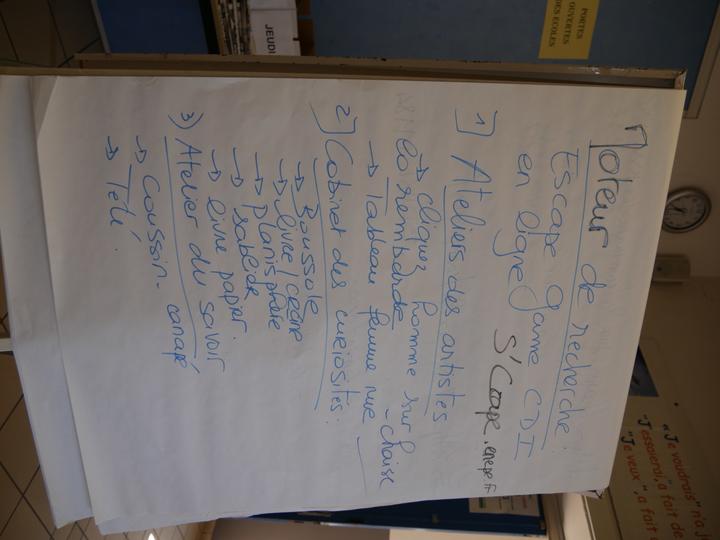 Moteur de recherche :
Escape game CDI
en ligne S'Cape.enepe.fr
1) Ateliers des artistes
→ cliquez homme sur chaise
→ Tableau femme nue
2) Cabinet des curiosités :
→ Boussole
→ livre / crâne
→ Planisphère
→ sablier
→ livre papier.
3) Atelier du savoir
→ Coussin - canapé
→ Télé.
JEUDI
PORTES
OUVERTES
DES ECOLES
"Je voudrais" n'a j
"J'essaierai" a fait de
"Je veux", a fait